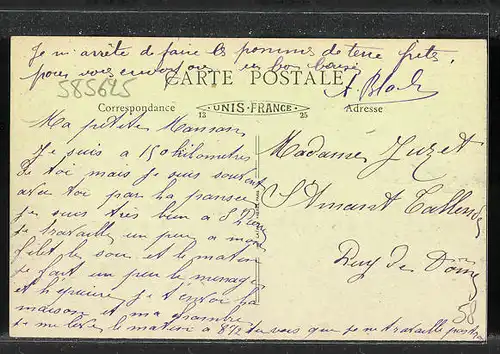 Je m'arrête de faire les pommes de terre frites,
pour vous envoyer un bon baiser
585625
CARTE POSTALE
A. Blach
Correspondance
UNIS-FRANCE
13 25
Adresse
Ma petite Maman,
Je suis a 150 kilometres
de toi mais je suis souvent
avec toi par la pensée
je suis très bien a St Pierre
je travaille un peu a mon
filet le soir et le matin
je fait un peu le menage
et l'epicerie, je t'envoi la
maison et ma chambre
je me lève le matin a 8h½ tu vois que je ne travaille pas trop
Madame Juzet
St Amant Tallende
Puy de Dôme
58